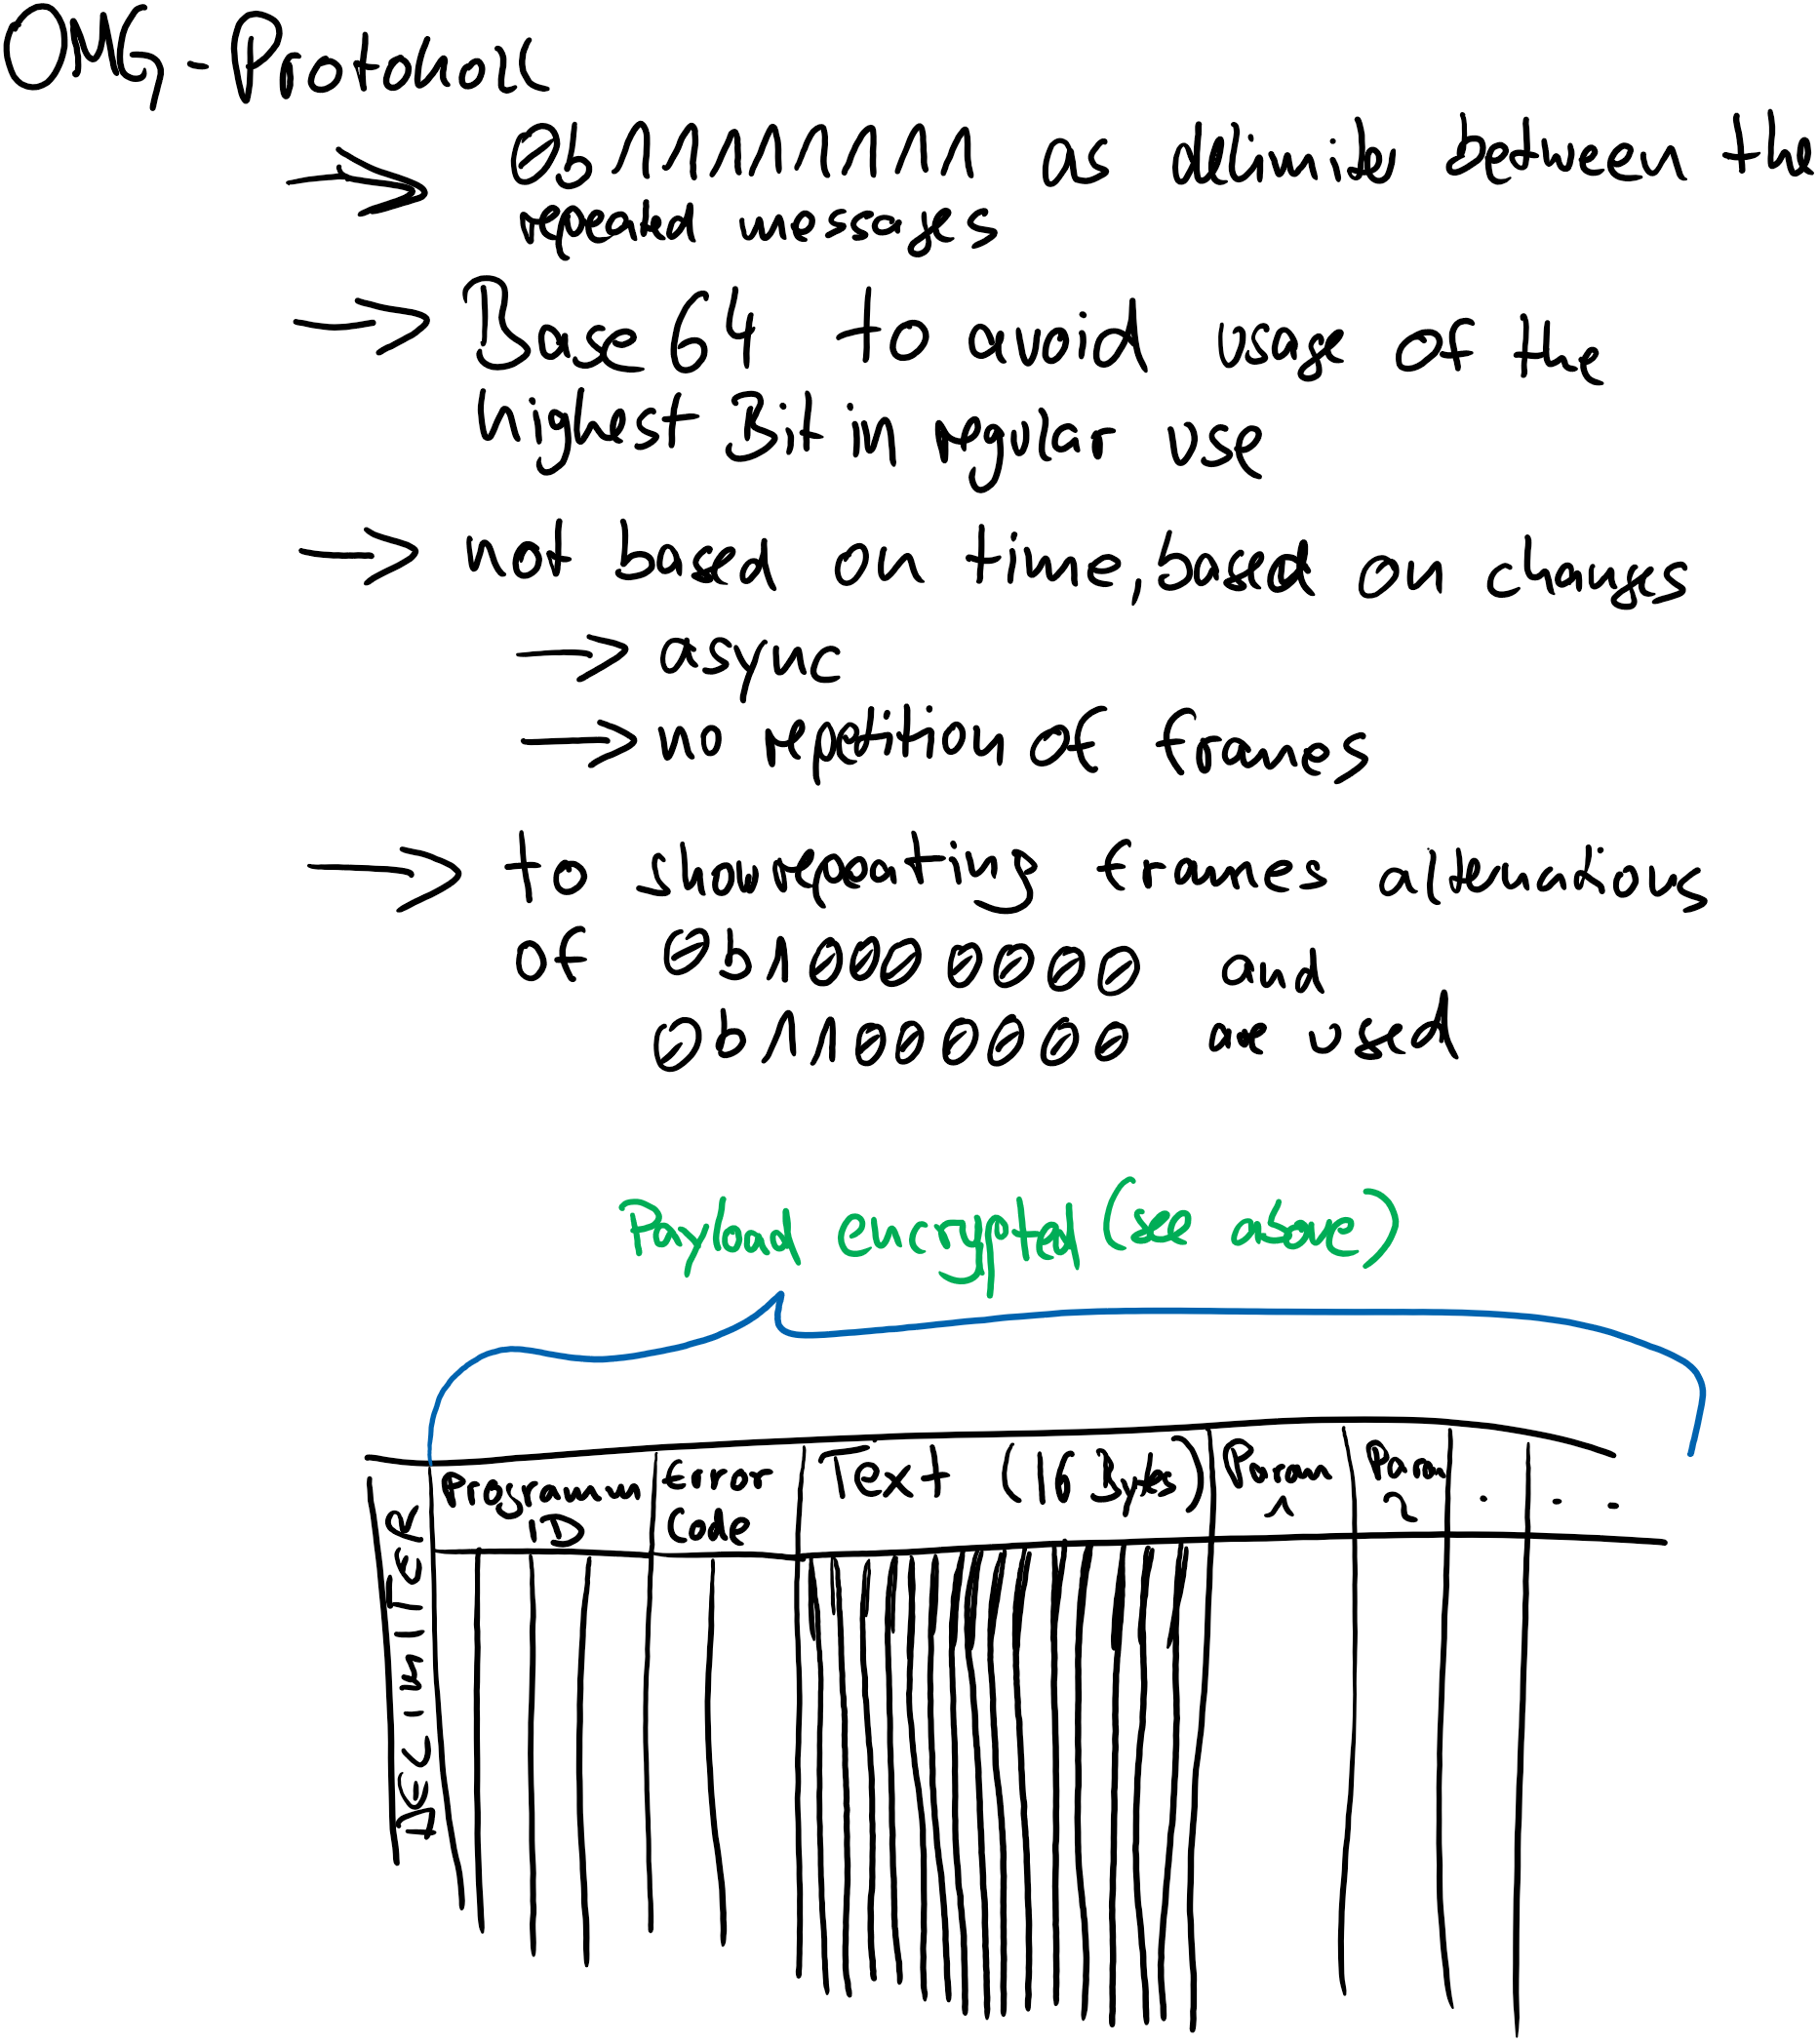 OMG-Protokoll
0b11111111 as delimiter between the
repeated messages
Base64 to avoid usage of the
highest Bit in regular use
not based on time, based on changes
async
no repetition of frames
to show repeating frames alternations
of 0b10000000 and
0b11000000 are used
Payload encrypted (see above)
DELIMITER
Programm Error Text (16 Bytes) Param Param . . .
ID Code 1 2